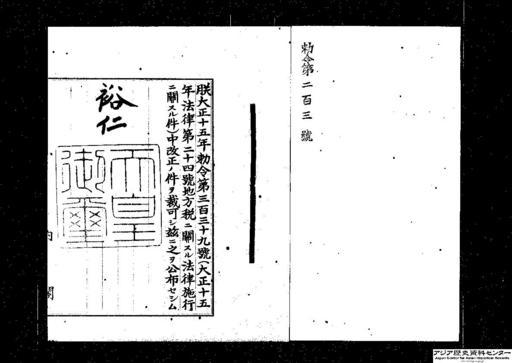 勅令第二百三號
朕大正十五年勅令第三百三十九號(大正十五
年法律第二十四號地方税ニ關スル法律施行
ニ關スル件)中改正ノ件ヲ裁可シ茲ニ之ヲ公布セシム
裕仁
天皇御璽
内閣
アジア歴史資料センター
Japan Center for Asian Historical Records